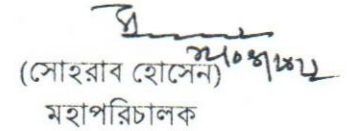 (সোহরাব হোসেন)
মহাপরিচালক